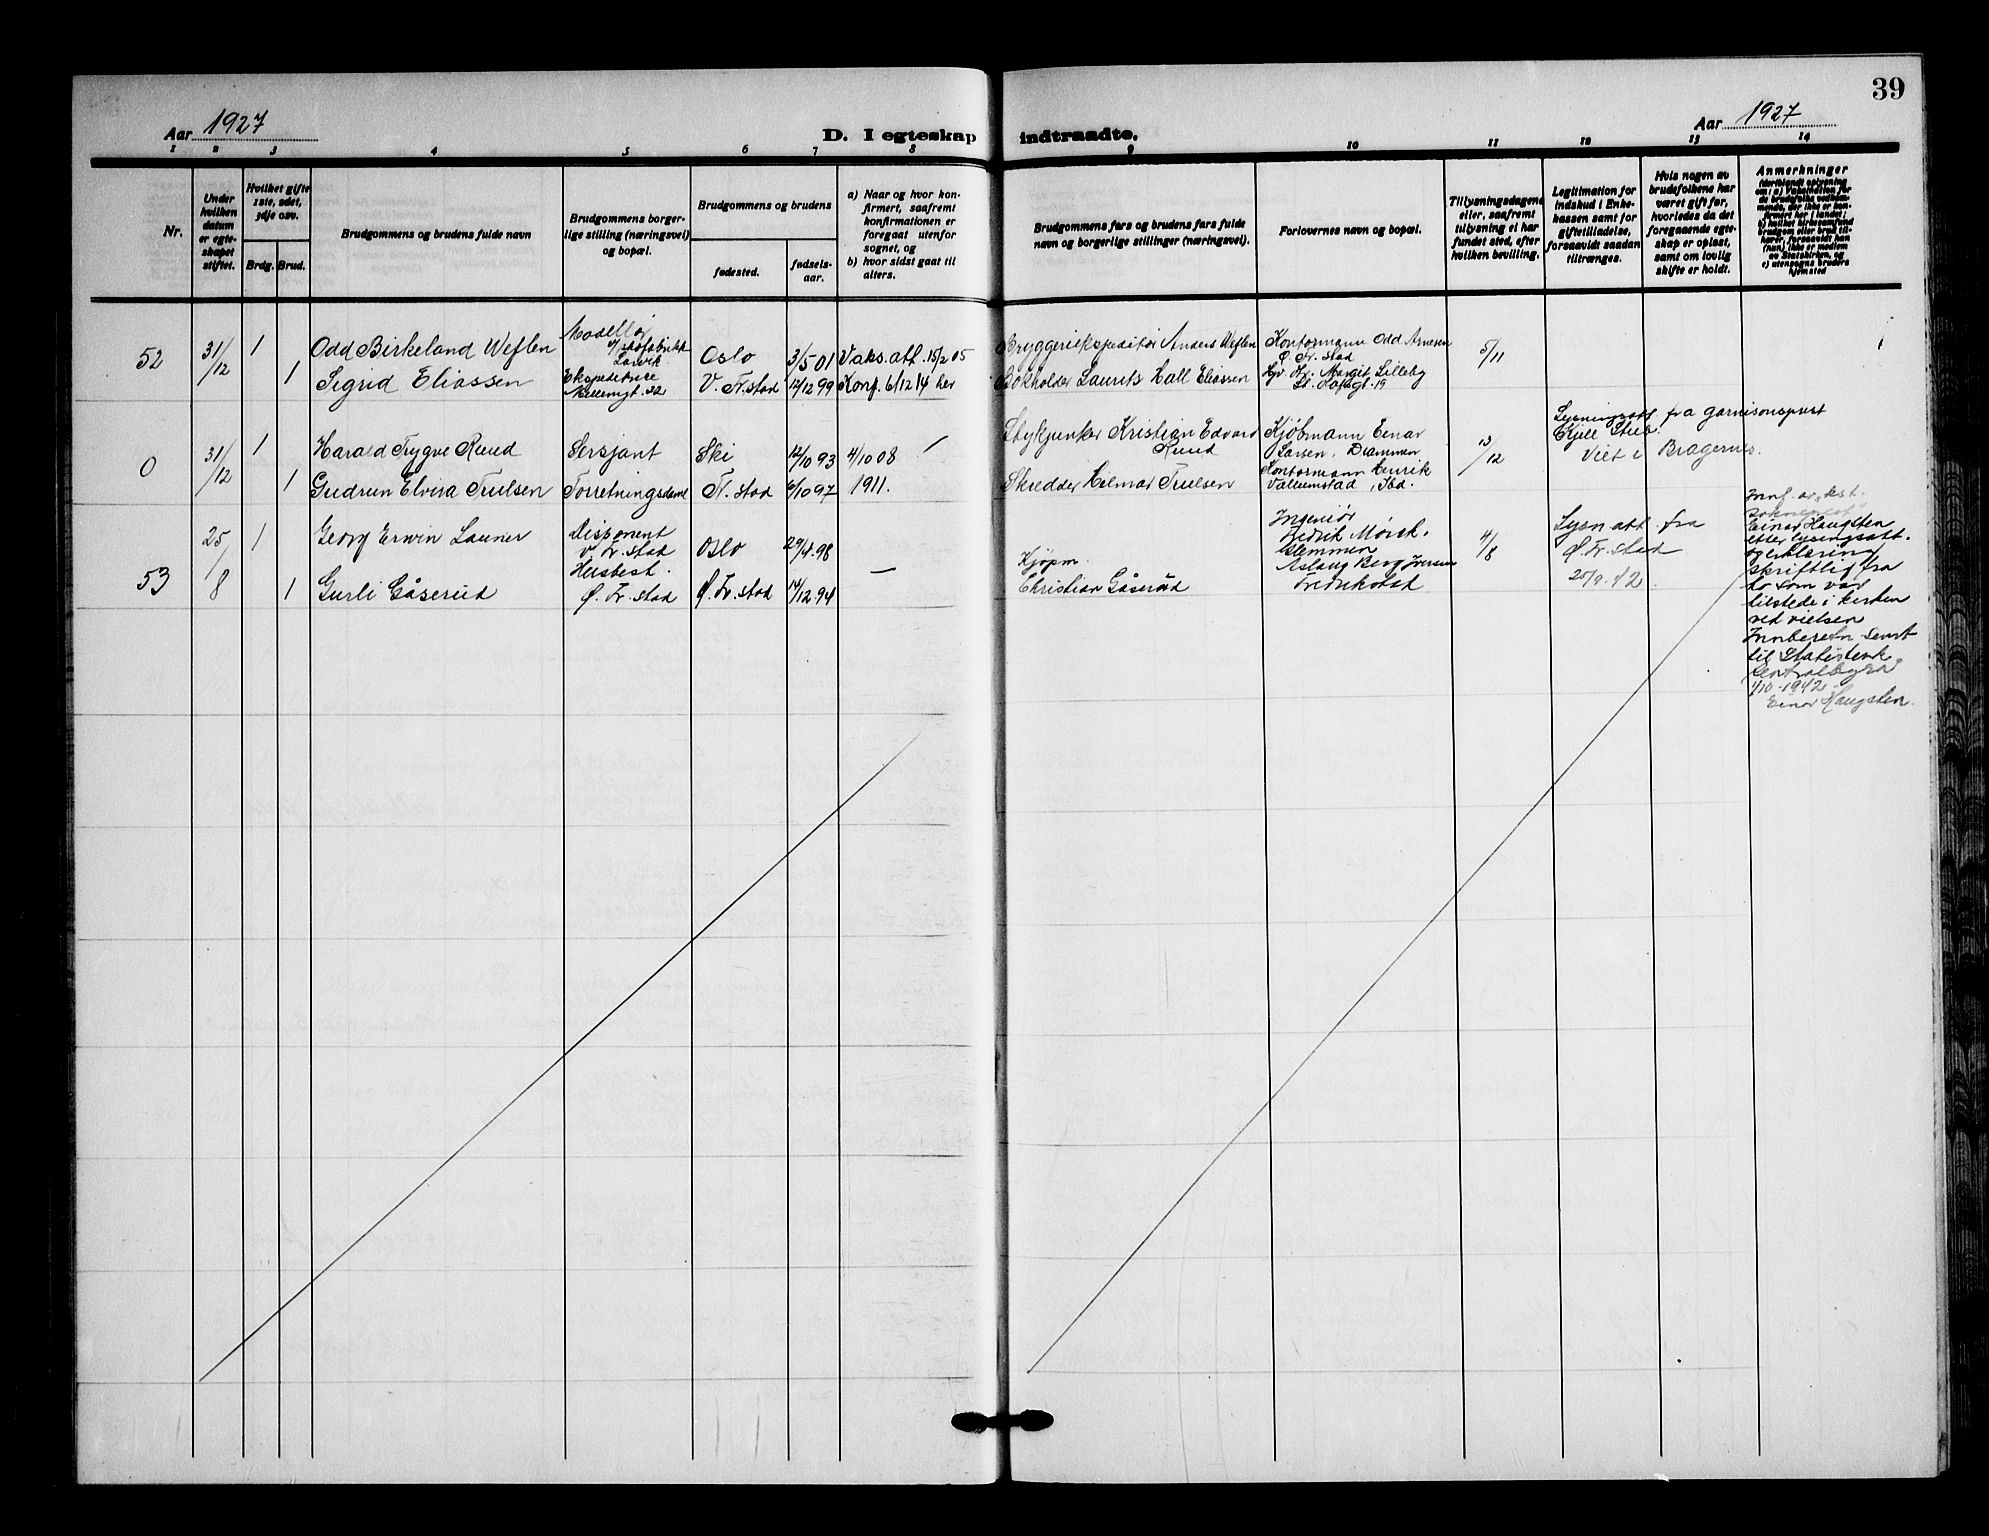 39
Aar 1927
D. I egteskap indtraadte.
Aar 1927
1 2 3 4 5 6 7 8 9 10 11 12 13 14
Nr.
Under hvilken datum er egteskapet stiftet.
Hvilket gifte 1ste, 2det, 3dje osv.
Brdg. Brud.
Brudgommens og brudens fulde navn
Brudgommens borgerlige stilling (næringsvei) og bopæl.
Brudgommens og brudens
fødested.
fødselsaar.
a) Naar og hvor konfirmert, saafremt konfirmationen er foregaat utenfor sognet, og
b) hvor sidst gaat til alters.
Brudgommens fars og brudens fars fulde navn og borgerlige stillinger (næringsvei).
Forlovernes navn og bopæl.
Tillysningsdagene eller, saafremt tillysning ei har fundet sted, efter hvilken bevilling.
Legitimation for indskud i Enkekassen samt for giftetilladelse, forsaavidt saadan tiltrænges.
Hvis nogen av brudefolkene har været gift før, hvorledes da det foregaaende egteskap er opløst, samt om lovlig skifte er holdt.
Anmerkninger
(deriblandt oplysning om: a) Vaksination for de brudefolks vedkommende, der ikke er konfirmert her i landet; b) hvilket kirkesamfund brudgom eller brud tilhører, forsaavidt han (hun) ikke er medlem av Statskirken, og c) utensogns bruders hjemsted
52 31/12 1 Odd Birkeland Weflen
Modellør v/ skofabrikk Larvik
Oslo 3/5 01 Vaks.att. 15/2 05
Bryggeriekspeditør Anders Weflen
Kontormann Odd Arnesen
Ø. Fr. stad
5/11
1 Sigrid Eliassen
Ekspeditrice
V. Fr. stad 12/12 99 Konf. 6/12 14 her
Bokholder Laurits Hall Eliassen
Margit Lilleby
0 31/12 1 Harald Trygve Ruud
Sersjant Ski 12/10 93 4/10 08 —
Stykjunker Kristian Edvard Ruud
Kjøbmann Einar Larsen, Drammen
13/12
Lysningsatt. fra garnisonsprest
Kjell Stub.
Viet i Bragernes.
1 Gudrun Elvira Truelsen
Forretningsdame Fr. stad 6/10 97 1911.
Skredder Hilmar Truelsen
Kontormann Henrik
53 25/8 1 Georg Erwin Launer
Disponent
V. Fr. stad
Oslo 29/4. 98
Ingeniør
Fredrik Mørck.
Glemmen
4/8
Lysn. att. fra
Ø. Fr. stad
25/9. 42.
1 Gurli Gåserud
Husbest.
Ø. Fr. stad
Ø. Fr. stad 14/12. 94 —
Kjøpm.
Christian Gåserud
Aslaug Berg Iversen
Fredrikstad
Innf. av kst.
sokneprest
Einar Haugsten
etter lysingsatt.
og erklæring
skriftlig fra
to som var
tilstede i kirken
ved vielsen
Innberetn. sendt
til Statistisk
Centralbyrå
1/10-1942
Einar Haugsten.